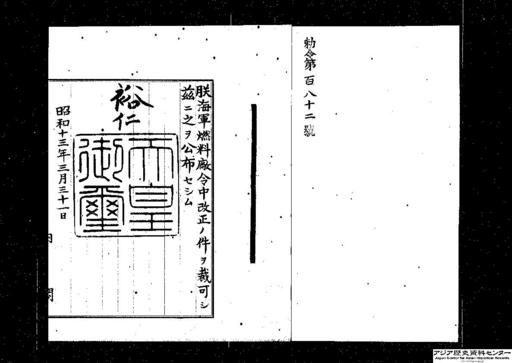 勅令第百八十二號
朕海軍燃料廠令中改正ノ件ヲ裁可シ
茲ニ之ヲ公布セシム
裕仁
天皇
御璽
昭和十三年三月三十一日
内 閣
アジア歴史資料センター
Japan Center for Asian Historical Records